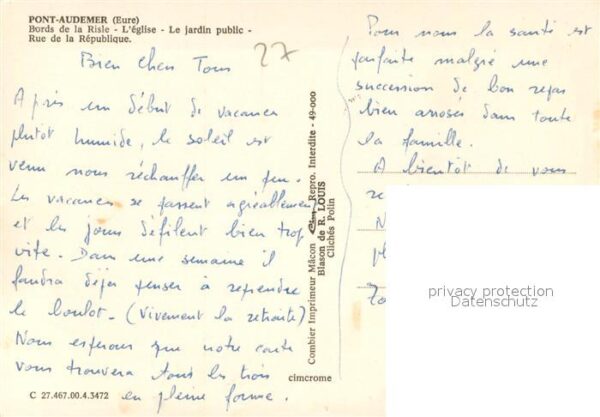 PONT-AUDEMER (Eure)
Bords de la Risle - L'église - Le jardin public -
Rue de la République.
27
Bien Chers Tous
Après un début de vacances
plutôt humide, le soleil est
venu nous réchauffer un peu.
Les vacances se passent agréablement
et les jours défilent bien trop
vite. Dans une semaine il
faudra déjà penser à reprendre
le boulot. (Vivement la retraite)
Nous espérons que notre carte
vous trouvera tous les trois
en pleine forme.
C 27.467.00.4.3472
cimcrome
Combier Imprimeur Mâcon Cim Repro. Interdite - 49-000
Blason de R. LOUIS
Clichés Polin
Pour nous la santé est
parfaite malgré une
succession de bon repas
bien arrosés dans toute
la famille.
A bientôt de vous
re
N
pl
privacy protection
Datenschutz